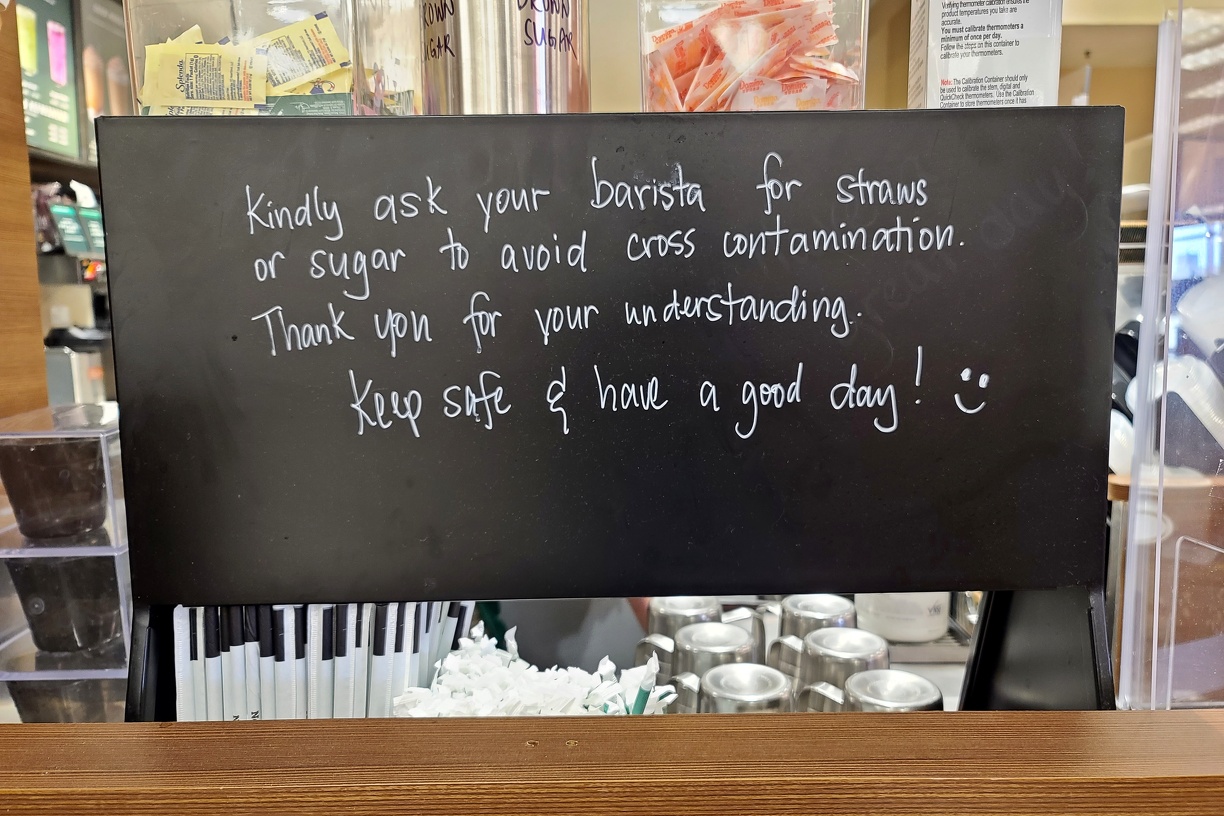 Splenda
BROWN
SUGAR
Verifying thermometer calibration ensures the
product temperatures you take are
accurate.
You must calibrate thermometers a
minimum of once per day.
Follow the steps on this container to
calibrate your thermometers.
Note: The Calibration Container should only
be used to calibrate the stem, digital and
QuickCheck thermometers. Use the Calibration
Container to store thermometers once it has
Kindly ask your barista for straws
or sugar to avoid cross contamination.
Thank you for your understanding.
Keep safe & have a good day!